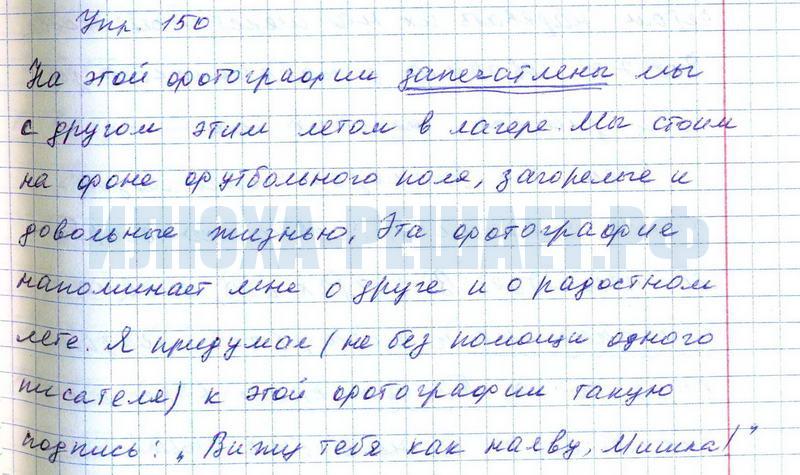 Упр. 150
На этой фотографии запечатлены мы
с другом этим летом в лагере. Мы стоим
на фоне футбольного поля, загорелые и
довольные жизнью. Эта фотография
ИЛЮХА-РЕШАЕТ.РФ
напоминает мне о друге и о радостном
лете. Я придумал (не без помощи одного
писателя) к этой фотографии такую
подпись: „Вижу тебя как наяву, Мишка!"